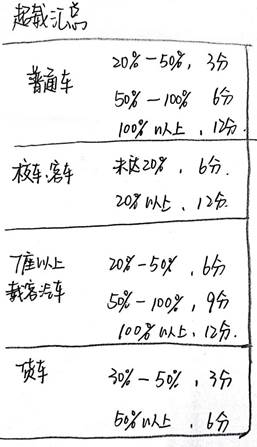 超载汇总
普通车
20%-50%，3分
50%-100% 6分
100%以上，12分.
校车.客车
未达20%，6分.
20%以上，12分.
7座以上
载客汽车
20%-50%，6分
50%-100%，9分
100%以上，12分.
货车
30%-50%，3分
50%以上，6分